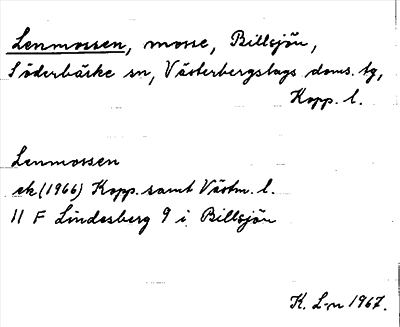 Lenmossen, mosse, Billsjön,
Söderbärke sn, Västerbergslags doms. tg,
Kopp. l.
Lenmossen
ek (1966) Kopp. samt Västm. l.
11 F Lindesberg 9 i Billsjön
K. L-n 1967.